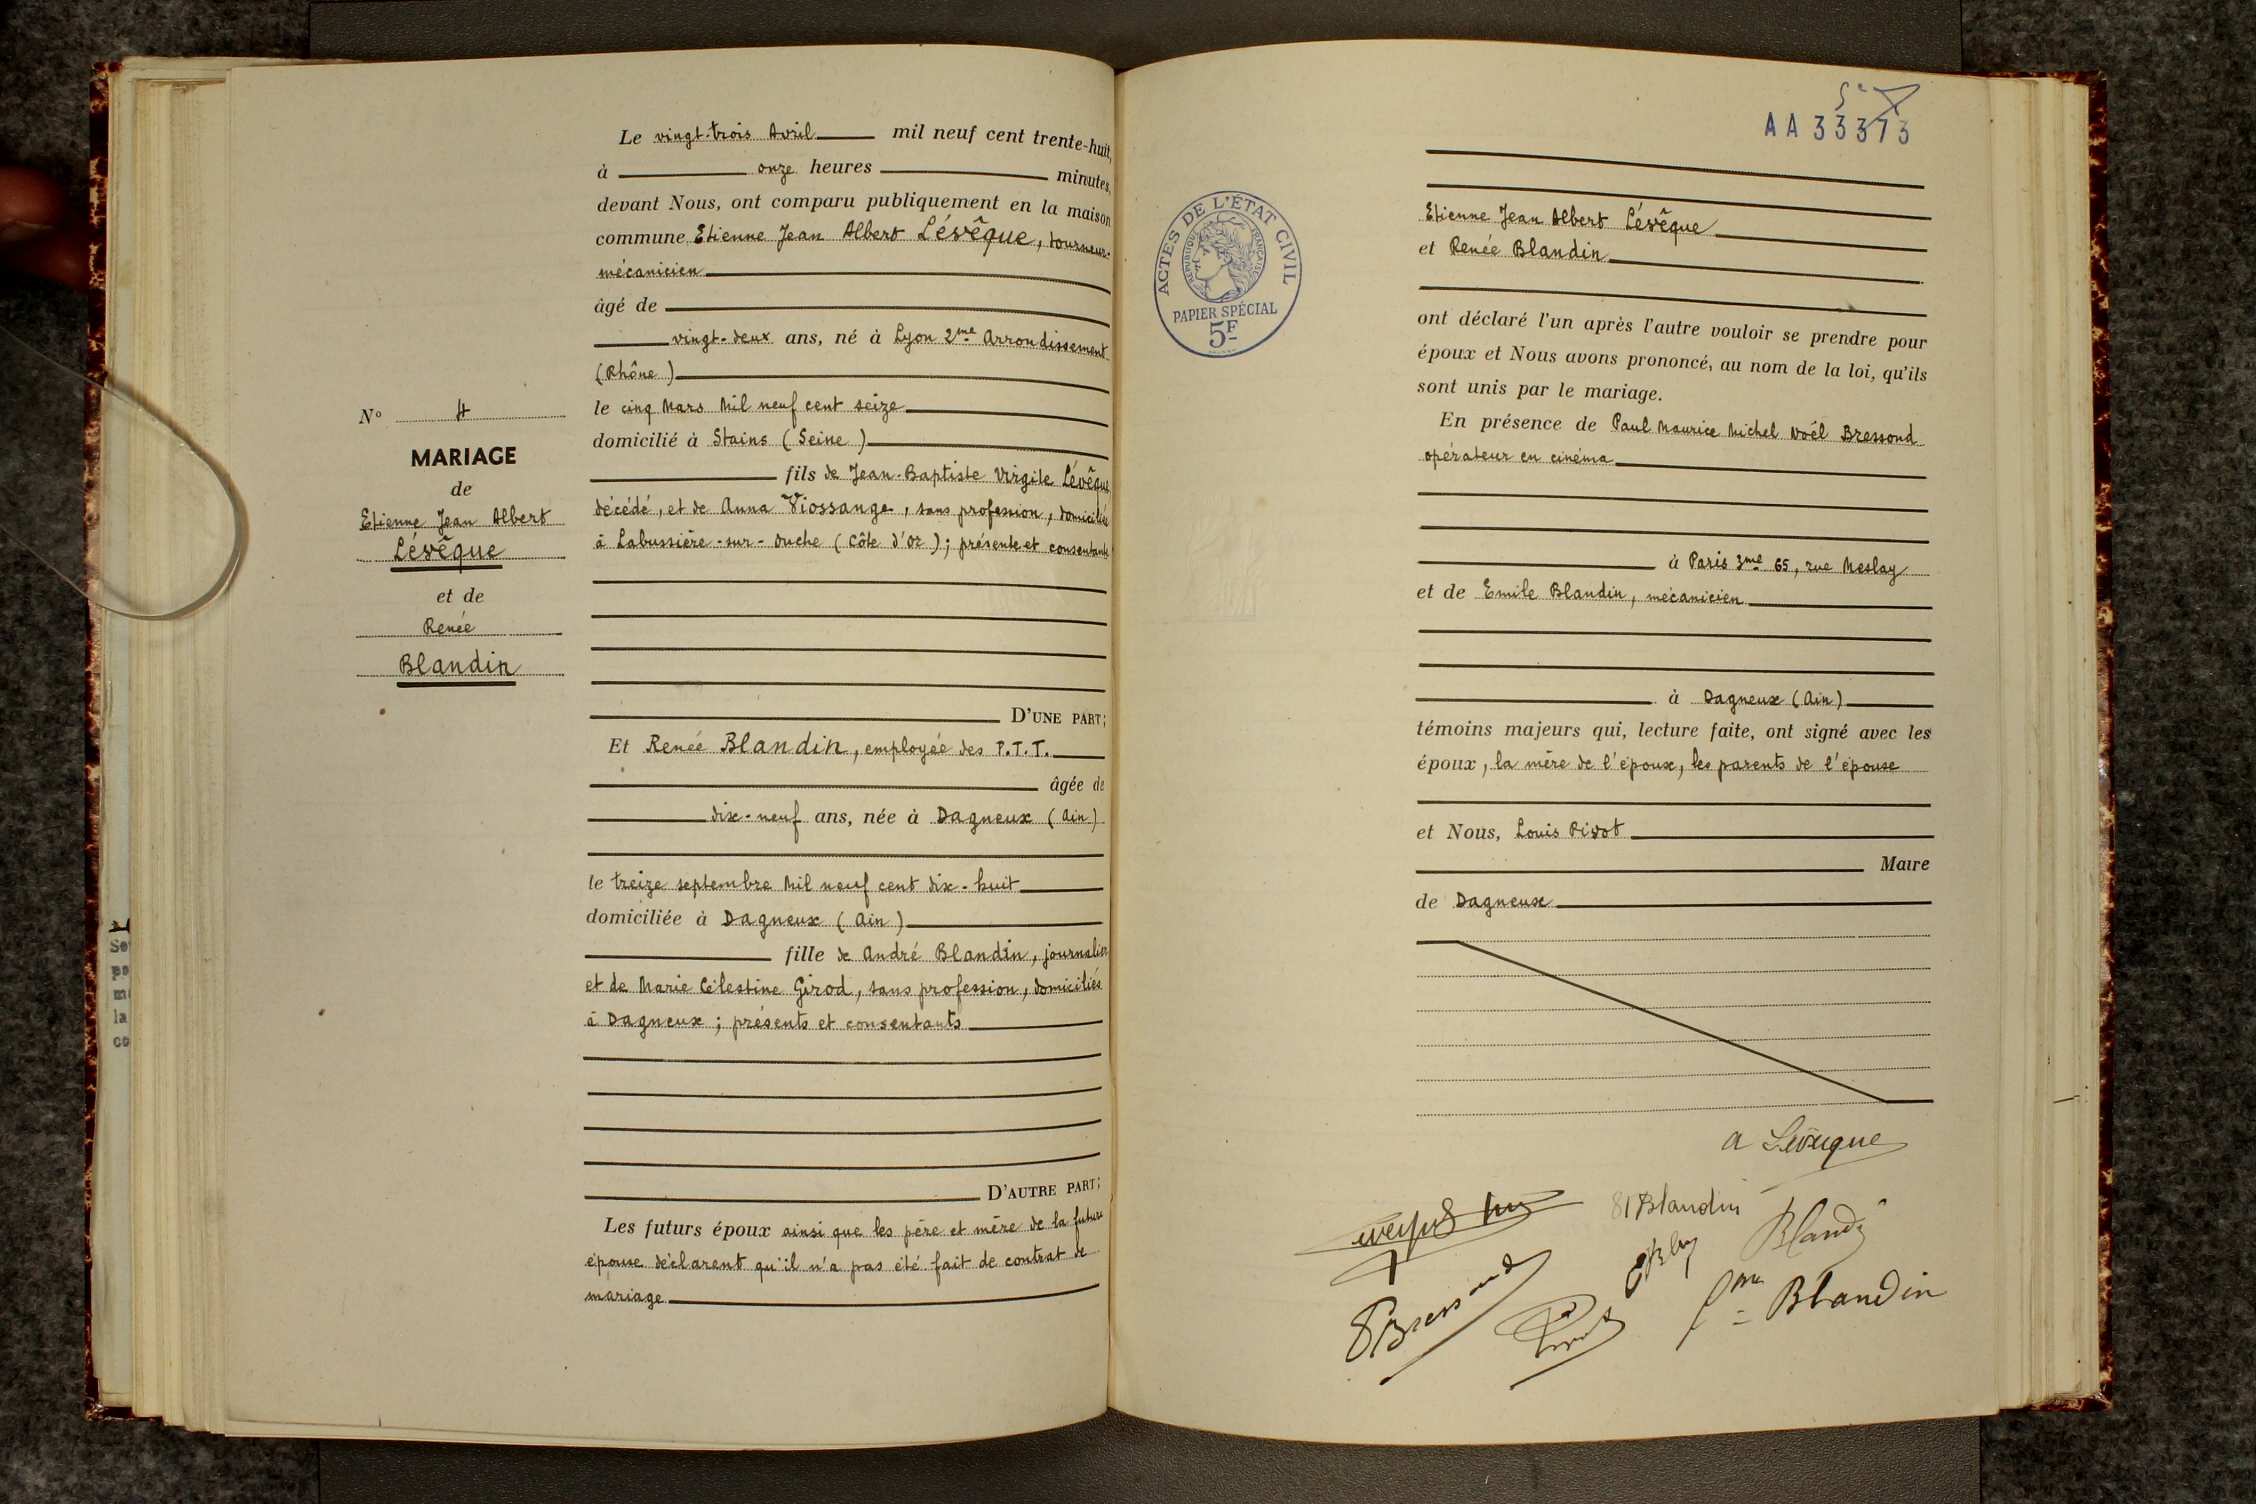 N° 4
MARIAGE
de
Etienne Jean Albert
Lévêque
et de
Renée
Blandin
Le vingt-trois Avril mil neuf cent trente-huit,
à onze heures minutes,
devant Nous, ont comparu publiquement en la maison
commune Etienne Jean Albert Lévêque, tourneur-
mécanicien
âgé de
vingt-deux ans, né à Lyon 2me Arrondissement
(Rhône)
le cinq Mars Mil neuf cent seize
domicilié à Stains (Seine)
fils de Jean-Baptiste Virgile Lévêque
décédé, et de Anna Viossange, sans profession, domiciliée
à Labussière-sur-Ouche (Côte d'Or); présente et consentante
D'UNE PART;
Et Renée Blandin, employée des P.T.T.
âgée de
dix-neuf ans, née à Dagneux (Ain)
le treize septembre Mil neuf cent dix-huit
domiciliée à Dagneux (Ain)
fille de André Blandin, journalier
et de Marie Célestine Girod, sans profession, domiciliés
à Dagneux; présents et consentants
D'AUTRE PART;
Les futurs époux ainsi que les père et mère de la future
épouse déclarent qu'il n'a pas été fait de contrat de
mariage
AA 33373
ACTES DE L'ÉTAT CIVIL
RÉPUBLIQUE FRANÇAISE
PAPIER SPÉCIAL
5F
Etienne Jean Albert Lévêque
et Renée Blandin
ont déclaré l'un après l'autre vouloir se prendre pour
époux et Nous avons prononcé, au nom de la loi, qu'ils
sont unis par le mariage.
En présence de Paul Maurice Michel Noël Bressond
opérateur en cinéma
à Paris 3me 65, rue Meslay
et de Emile Blandin, mécanicien
à Dagneux (Ain)
témoins majeurs qui, lecture faite, ont signé avec les
époux, la mère de l'époux, les parents de l'épouse
et Nous, Louis Pivot
Maire
de Dagneux
a Lévêque
Blandin
PBressond
Blandin